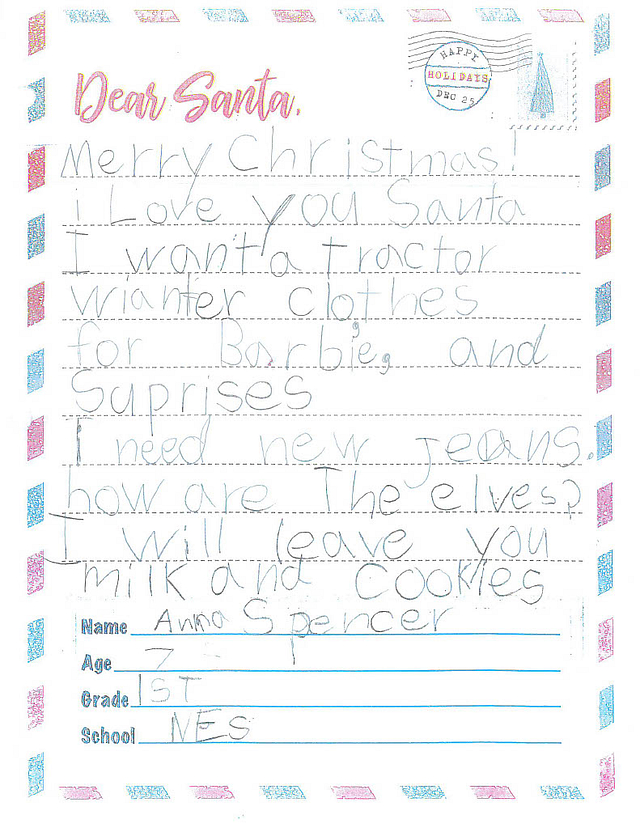 HAPPY
HOLIDAYS
DEC 25
Dear Santa,
Merry Christmas!
i Love you Santa
I want a tractor
wianter clothes
for Barbie, and
Suprises
I need new jeans.
how are The elves?
I will leave you
milk and cookies
Name Anna Spencer
Age 7
Grade 1ST
School NES